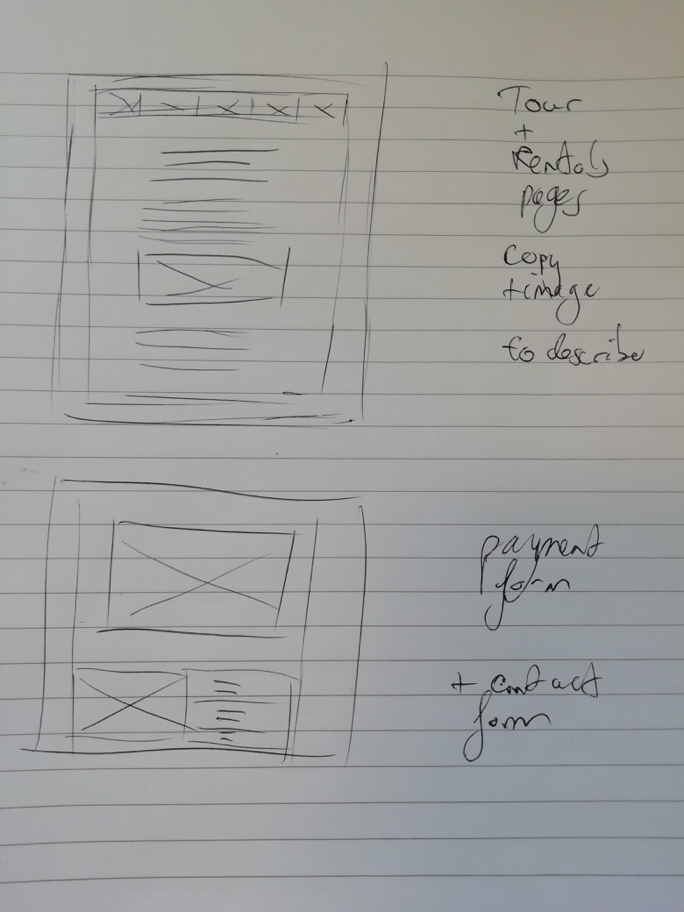 Tour
+
Rentals
pages
copy
+image
to describe
payment
form
+ contact
form